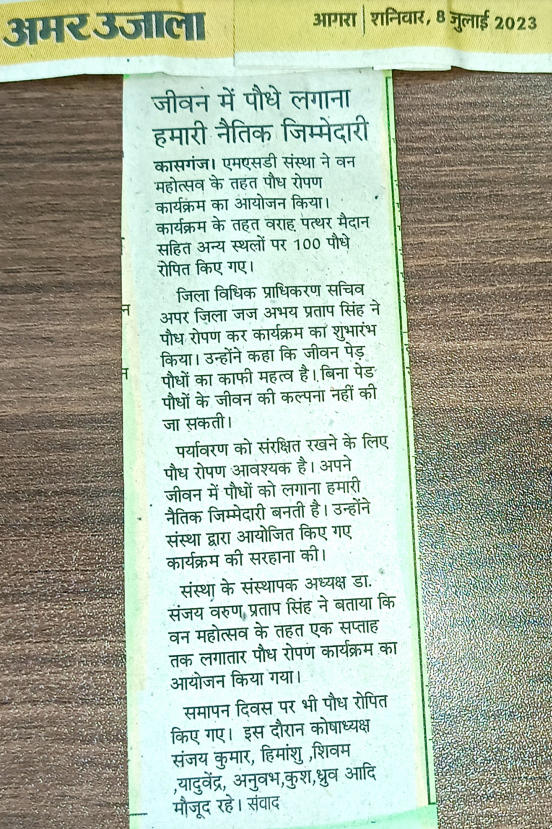 अमर उजाला
आगरा | शनिवार, 8 जुलाई 2023
जीवन में पौधे लगाना
हमारी नैतिक जिम्मेदारी
कासगंज। एमएसडी संस्था ने वन
महोत्सव के तहत पौध रोपण
कार्यक्रम का आयोजन किया।
कार्यक्रम के तहत वराह पत्थर मैदान
सहित अन्य स्थलों पर 100 पौधे
रोपित किए गए।
जिला विधिक प्राधिकरण सचिव
अपर जिला जज अभय प्रताप सिंह ने
पौध रोपण कर कार्यक्रम का शुभारंभ
किया। उन्होंने कहा कि जीवन पेड़
पौधों का काफी महत्व है। बिना पेड
पौधों के जीवन की कल्पना नहीं की
जा सकती।
पर्यावरण को संरक्षित रखने के लिए
पौध रोपण आवश्यक है। अपने
जीवन में पौधों को लगाना हमारी
नैतिक जिम्मेदारी बनती है। उन्होंने
संस्था द्वारा आयोजित किए गए
कार्यक्रम की सरहाना की।
संस्था के संस्थापक अध्यक्ष डा.
संजय वरुण प्रताप सिंह ने बताया कि
वन महोत्सव के तहत एक सप्ताह
तक लगातार पौध रोपण कार्यक्रम का
आयोजन किया गया।
समापन दिवस पर भी पौध रोपित
किए गए। इस दौरान कोषाध्यक्ष
संजय कुमार, हिमांशु ,शिवम
,यादुवेंद्र, अनुवभ,कुश,ध्रुव आदि
मौजूद रहे। संवाद